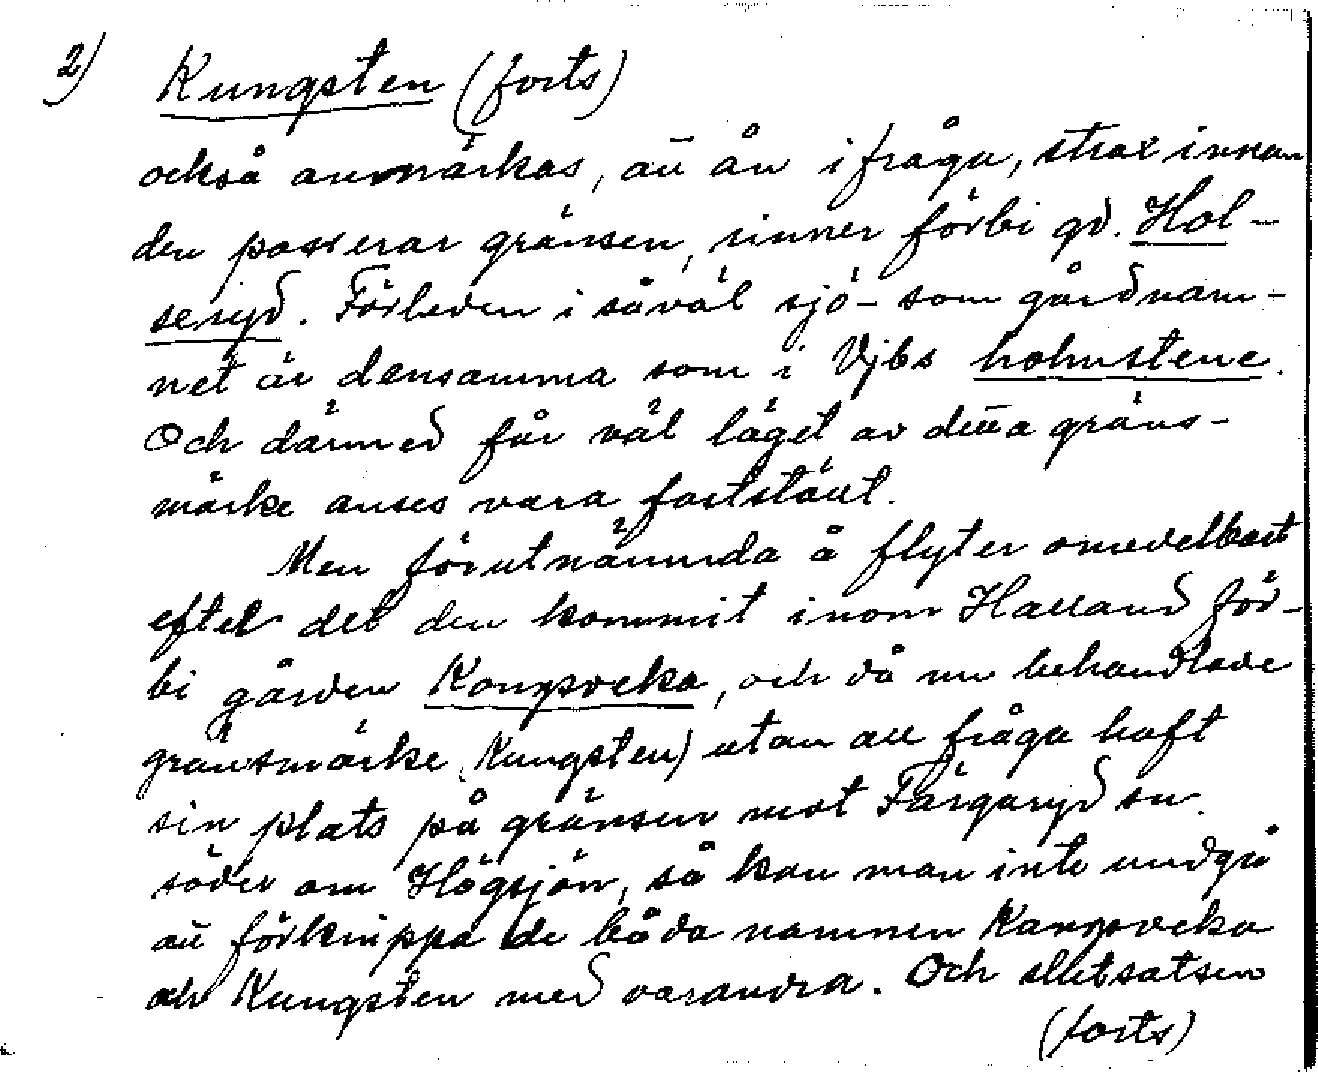 2) Kungsten (forts)
också anmärkas, att ån ifråga, strax innan
den passerar gränsen, rinner förbi gd. Hol-
seryd. Förleden i såväl sjö- som gårdnam-
net är densamma som i Vjbs holmstene.
Och därmed får väl läget av detta gräns-
märke anses vara fastställt.
Men förutnämnda å flyter omedelbart
efter det den kommit inom Halland för-
bi gården Kongsveka, och då nu behandlade
gränsmärke (Kungsten) utan all fråga haft
sin plats på gränsen mot Färgaryd sn.
söder om Högsjön, så kan man inte undgå
att förknippa de båda namnen Kongsveka
och Kungsten med varandra. Och slutsatsen
(forts)